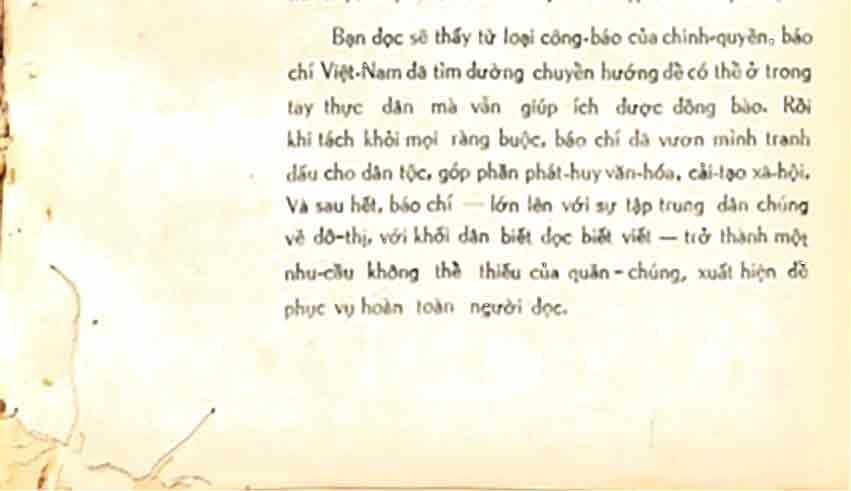 Bạn đọc sẽ thấy từ loại công-báo của chính-quyền, báo
chí Việt-Nam đã tìm đường chuyển hướng để có thể ở trong
tay thực dân mà vẫn giúp ích được đồng bào. Rồi
khi tách khỏi mọi ràng buộc, báo chí đã vươn mình tranh
đấu cho dân tộc, góp phần phát-huy văn-hóa, cải-tạo xã-hội.
Và sau hết, báo chí — lớn lên với sự tập trung dân chúng
về đô-thị, với khối dân biết đọc biết viết — trở thành một
nhu-cầu không thể thiếu của quần-chúng, xuất hiện để
phục vụ hoàn toàn người đọc.